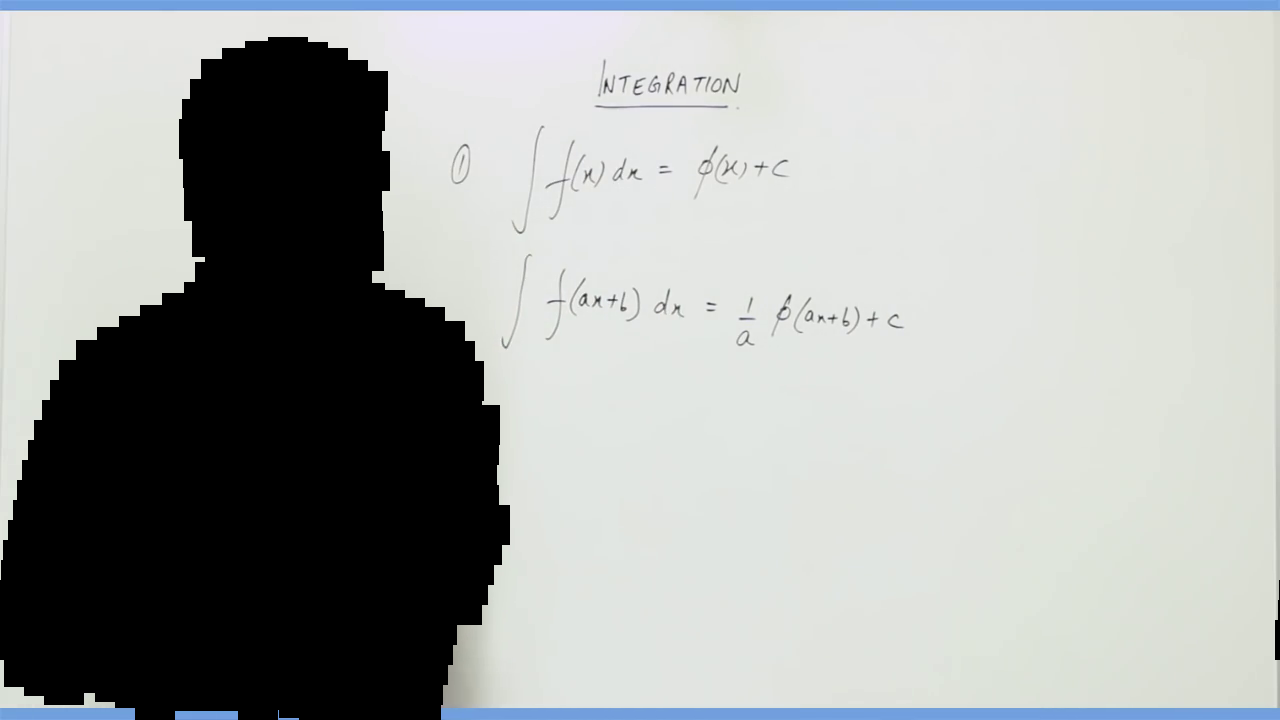 INTEGRATION
① ∫ f(x) dx = φ(x) + c
∫ f(ax+b) dx = 1/a φ(ax+b) + c